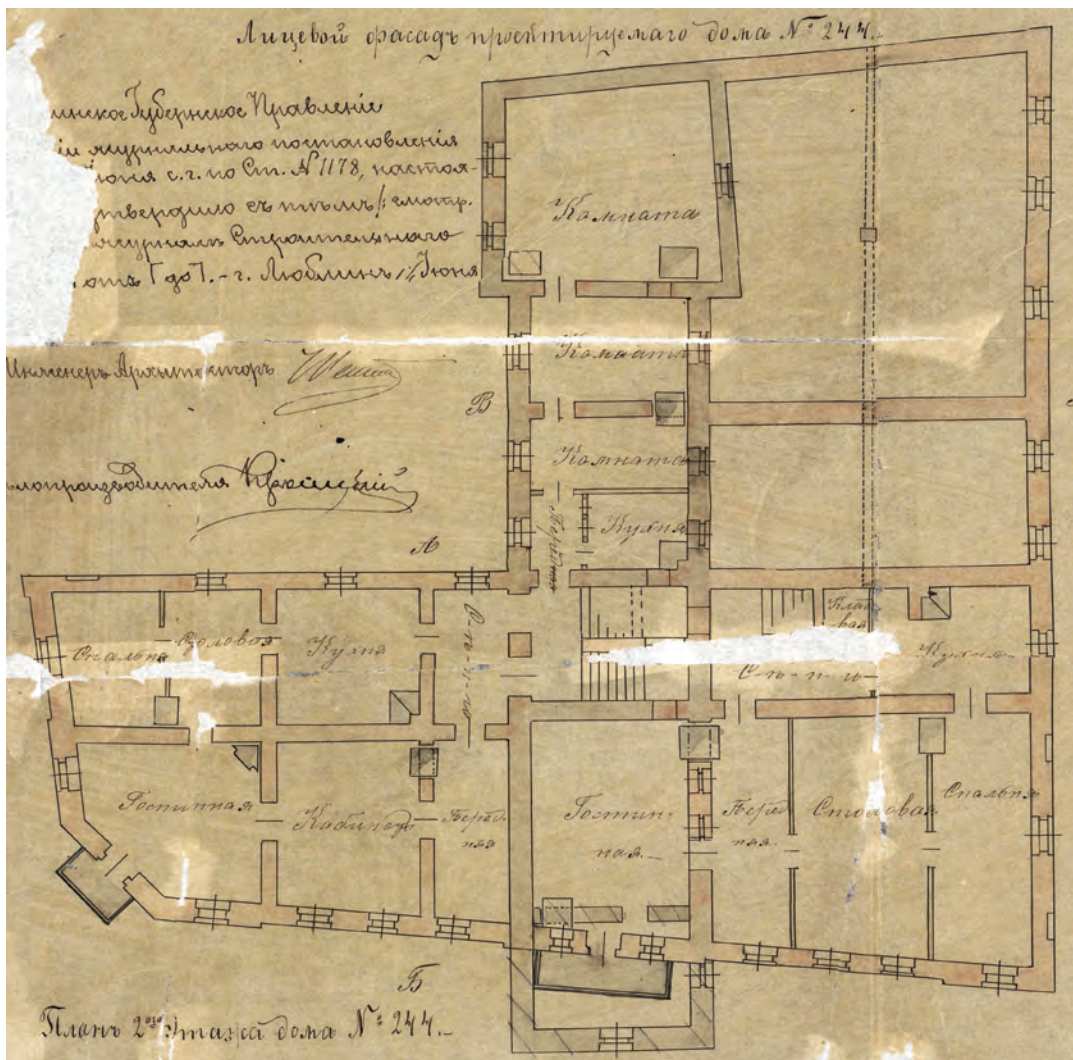 Лицевой фасадъ проэктируемаго дома № 244.-
инское Губернское Правленіе
іи журнальнаго постановленія
Іюня с.г. по Ст. № 1178, настоя-
твердило съ тѣмъ /: смотр.
журналъ Строительнаго
отъ Г до Г. - г. Люблинъ 11/ Іюня
Инженеръ Архитекторъ
лопроизводителя
Комната
Комната
В
Комната
Передняя
Кухня
А
Спальня
Столовая
Кухня
С-ѣ-н-ю
Клад
вая
С-ѣ-н-и
Кухня
Гостинная
Кабинетъ
Перед-
няя
Гостин-
ная.-
Перед
няя.
Столовая
Спальня
Б
Планъ 2ого Этажа дома № 244.-